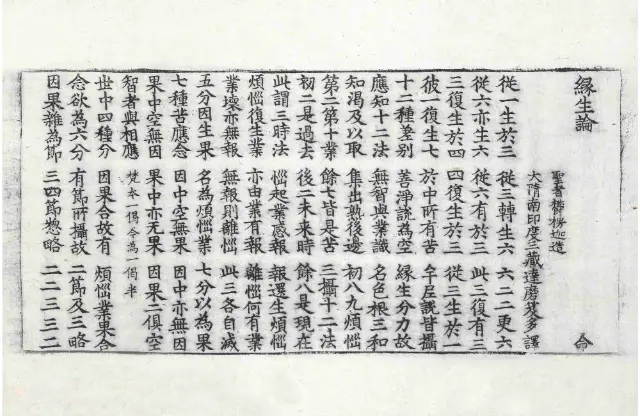 縁生論 命
聖者欝楞迦造
大隋南印度三藏達磨笈多譯
從一生於三 從三轉生六 六二二更六
從六亦生六 從六有於三 此三復有三
三復生於四 四復生於三 從三生於一
彼一復生七 於中所有苦 牟尼說皆攝
十二種差別 善淨說為空 緣生分力故
應知十二法 無智與業識 名色根三和
知渴及以取 集出熟後邊 初八九煩惱
第二第十業 餘七皆是苦 三攝十二法
初二是過去 後二未來時 餘八是現在
此謂三時法 惱起業感報 報還生煩惱
煩惱復生業 亦由業有報 離惱何有業
業壞亦無報 無報則離惱 此三各自滅
五分因生果 名為煩惱業 七分以為果
七種苦應念 因中空無果 因中亦無因
果中空無因 果中亦无果 因果二俱空
智者與相應 梵本一偈今為一偈半
世中四種分 因果合故有 煩惱業果合
念欲為六分 有節所攝故 二節及三略
因果雜為節 三四節惣略 二二三三二